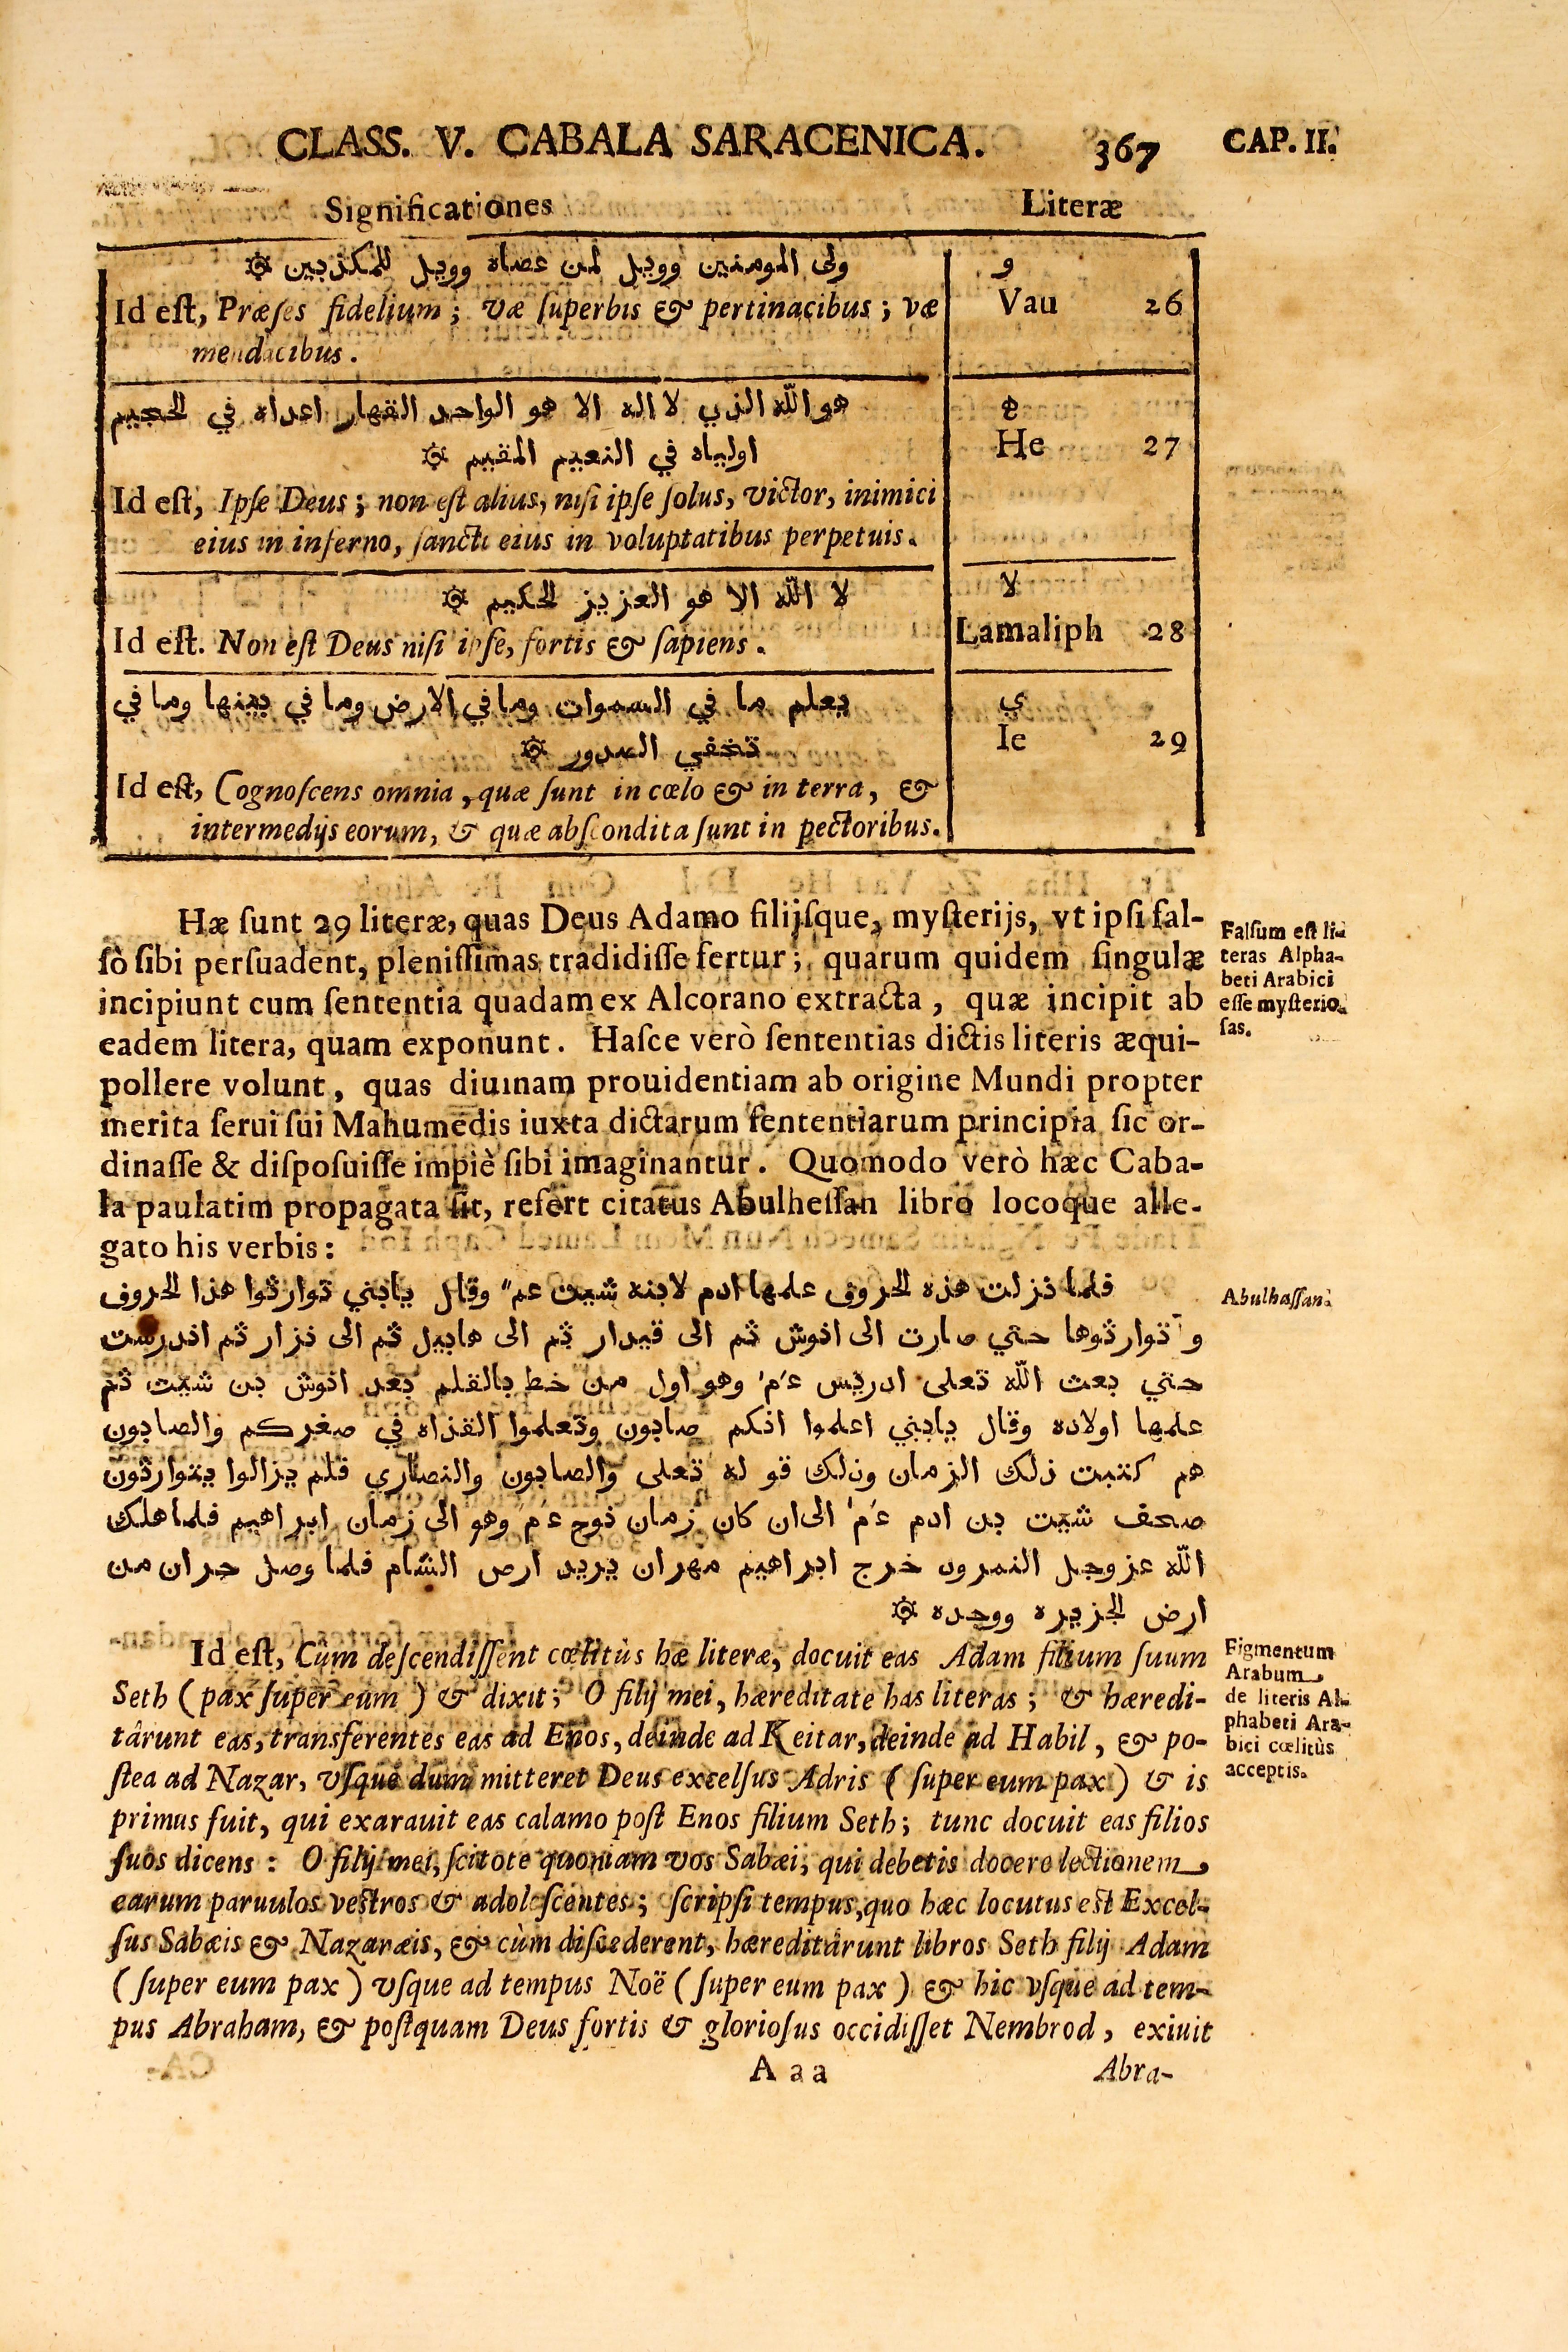 CLASS. V. CABALA SARACENICA. 367 CAP. II.
Significationes Literæ
ولى المومنين وويل لمن عصاه وويل للمكذبين ۞
و
Id eſt, Præſes fidelium; væ ſuperbis & pertinacibus; væ
Vau 26
mendacibus.
هو الله الذي لا اله الا هو الواحد القهار اعداه في الححيم
ه
اولياه في النعيم المقيم ۞
He 27
Id eſt, Ipſe Deus; non eſt alius, niſi ipſe ſolus, victor, inimici
eius in inferno, ſancti eius in voluptatibus perpetuis.
لا الله الا هو العزيز الحكيم ۞
لا
Id eſt. Non eſt Deus niſi ipſe, fortis & ſapiens.
Lamaliph 28
يعلم ما في السموات وما في الارض وما في بينها وما في
ي
تخفي الصدور ۞
Ie 29
Id eſt, Cognoſcens omnia, quæ ſunt in cœlo & in terra, &
intermedijs eorum, & quæ abſcondita ſunt in pectoribus.
Hæ ſunt 29 literæ, quas Deus Adamo filijſque, myſterijs, vt ipſi fal-
sò ſibi perſuadent, pleniſſimas tradidiſſe fertur; quarum quidem ſingulæ
incipiunt cum ſententia quadam ex Alcorano extracta, quæ incipit ab
eadem litera, quam exponunt. Haſce verò ſententias dictis literis æqui-
pollere volunt, quas diuinam prouidentiam ab origine Mundi propter
merita ſerui ſui Mahumedis iuxta dictarum ſententiarum principia ſic or-
dinaſſe & diſpoſuiſſe impiè ſibi imaginantur. Quomodo verò hæc Caba-
la paulatim propagata ſit, refert citatus Abulheſſan libro locoque alle-
gato his verbis:
Falſum eſt li-
teras Alpha-
beti Arabici
eſſe myſterio-
ſas.
فلما نزلت هذه الحروف علمها ادم لابنه شيت عم" وقال يابني توارثوا هذا الحروف
Abulhaſſan.
وتوارثوها حتي صارت الى انوش ثم الى قيدار ثم الى هابيل ثم الى نزار ثم اندرست
حتي بعث الله تعلى ادريس عم وهو اول من خط بالقلم بعد انوش بن شيت ثم
علمها اولاده وقال يابني اعلموا انكم صابون وتعلموا القزاه في صغركم والصابون
هم كتبت ذلك الزمان وذلك قو له تعلى والصابون والنصاري فلم يزالوا يتوارثون
صحف شيت بن ادم عم الى ان كان زمان نوح عم وهو الى زمان ابراهيم فلما هلك
الله عز وجل النمرود خرج ابراهيم مهران يريد ارض الشام فلما وصل حران من
ارض الجزيره ووجده ۞
Id eſt, Cùm deſcendiſſent cœlitùs hæ literæ, docuit eas Adam filium ſuum
Seth (pax ſuper eum) & dixit; O filij mei, hæreditate has literas; & hæredi-
târunt eas, transferentes eas ad Enos, deinde ad Keitar, deinde ad Habil, & po-
ſtea ad Nazar, vſque dum mitteret Deus excelſus Adris (ſuper eum pax) & is
primus fuit, qui exarauit eas calamo poſt Enos filium Seth; tunc docuit eas filios
ſuos dicens: O filij mei, ſcitote quoniam vos Sabæi, qui debetis docere lectionem
earum paruulos veſtros & adoleſcentes; ſcripſi tempus, quo hæc locutus eſt Excel-
ſus Sabæis & Nazaræis, & cùm diſcederent, hæreditârunt libros Seth filij Adam
(ſuper eum pax) vſque ad tempus Noë (ſuper eum pax) & hic vſque ad tem-
pus Abraham, & poſtquam Deus fortis & glorioſus occidiſſet Nembrod, exiuit
Figmentum
Arabum
de literis Al-
phabeti Ara-
bici cœlitùs
acceptis.
A a a Abra-